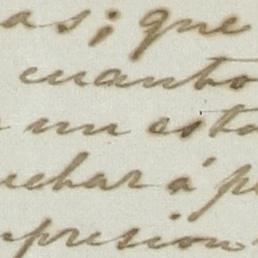 as; que
cuanto
un esta
uchar á p
presion